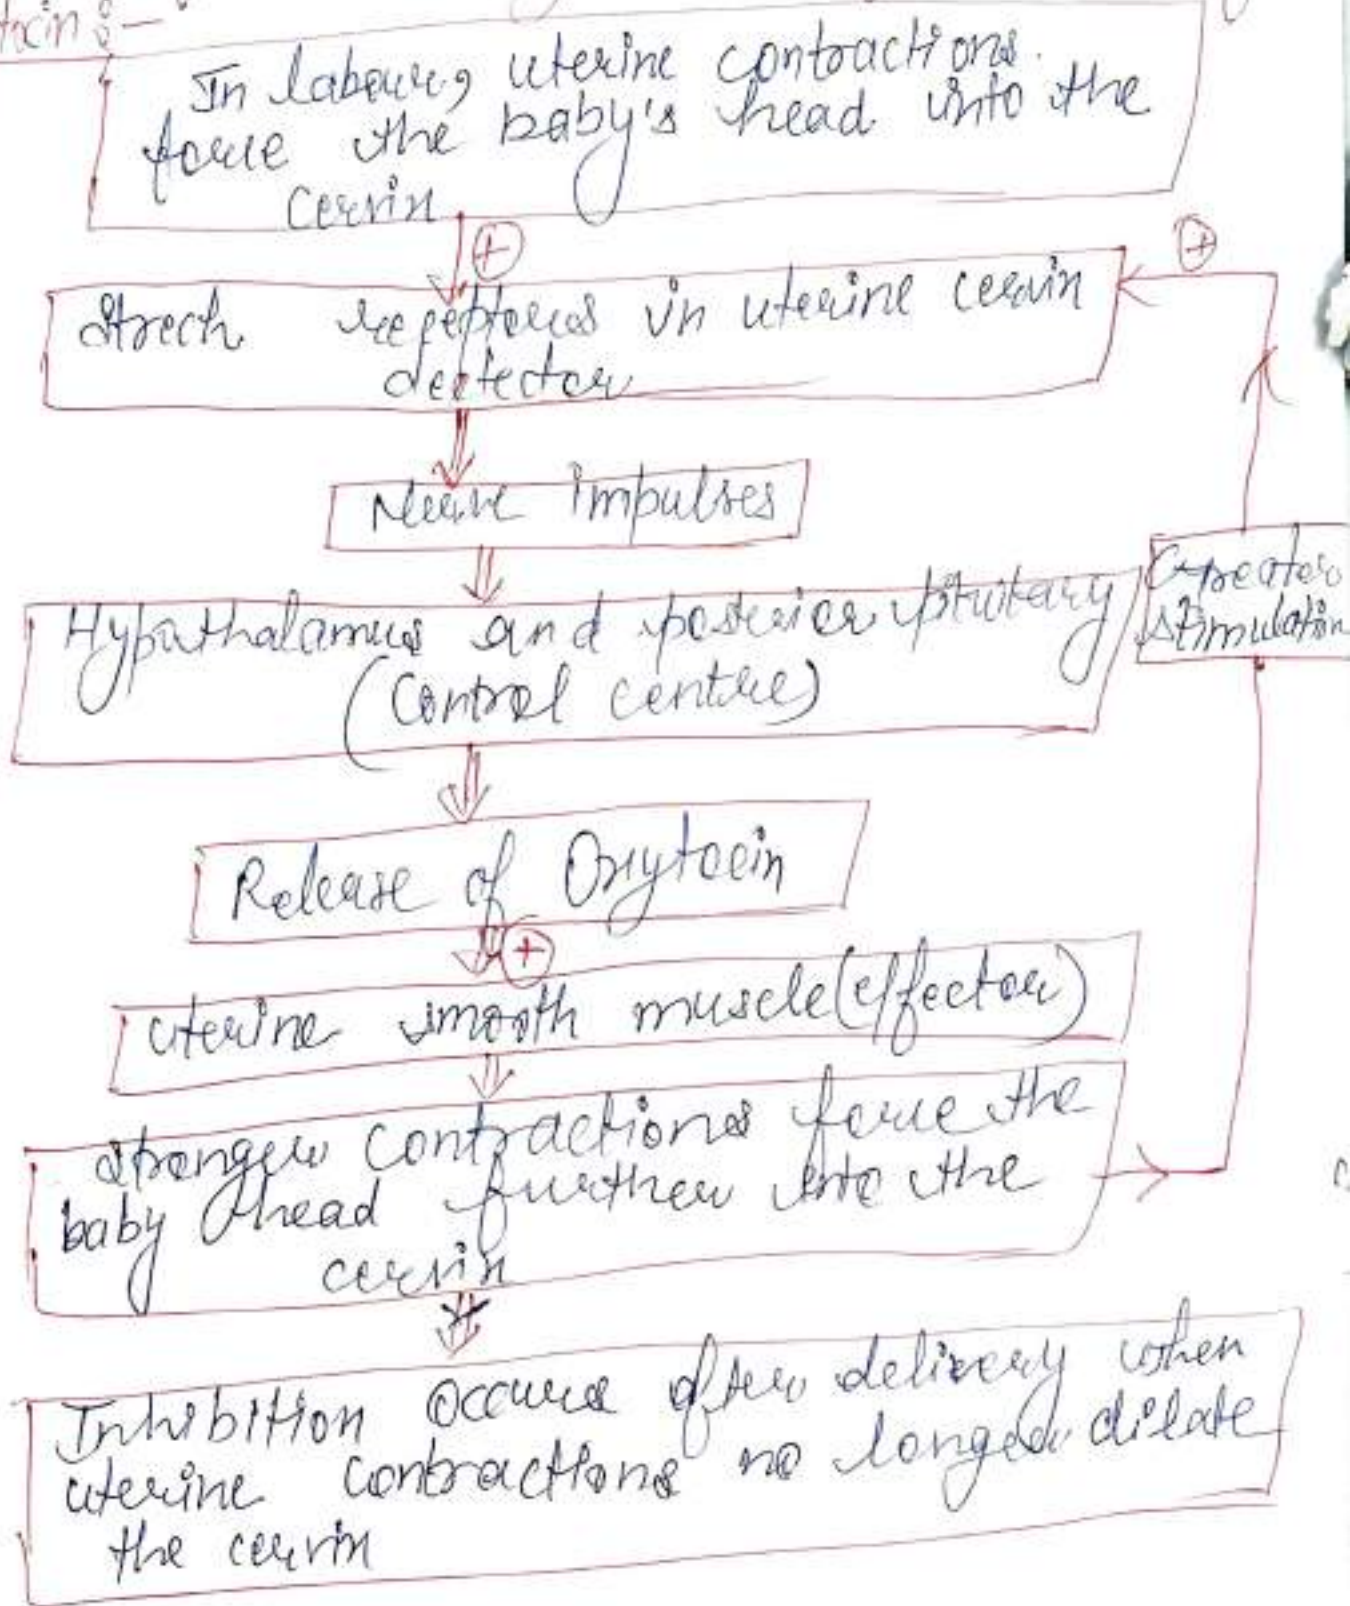 tocin :-
In labour, uterine contractions
force the baby's head into the
cervix
+
+
Strech receptores in uterine cervix
detector
Nerve impulses
Hypothalamus and posterior pituitary
(Control centre)
Greater
stimulation
Release of Oxytocin
+
Uterine smooth muscle (effector)
Stronger contractions force the
baby head further into the
cervix
Inhibition occurs after delivery when
uterine contractions no longer dilate
the cervix